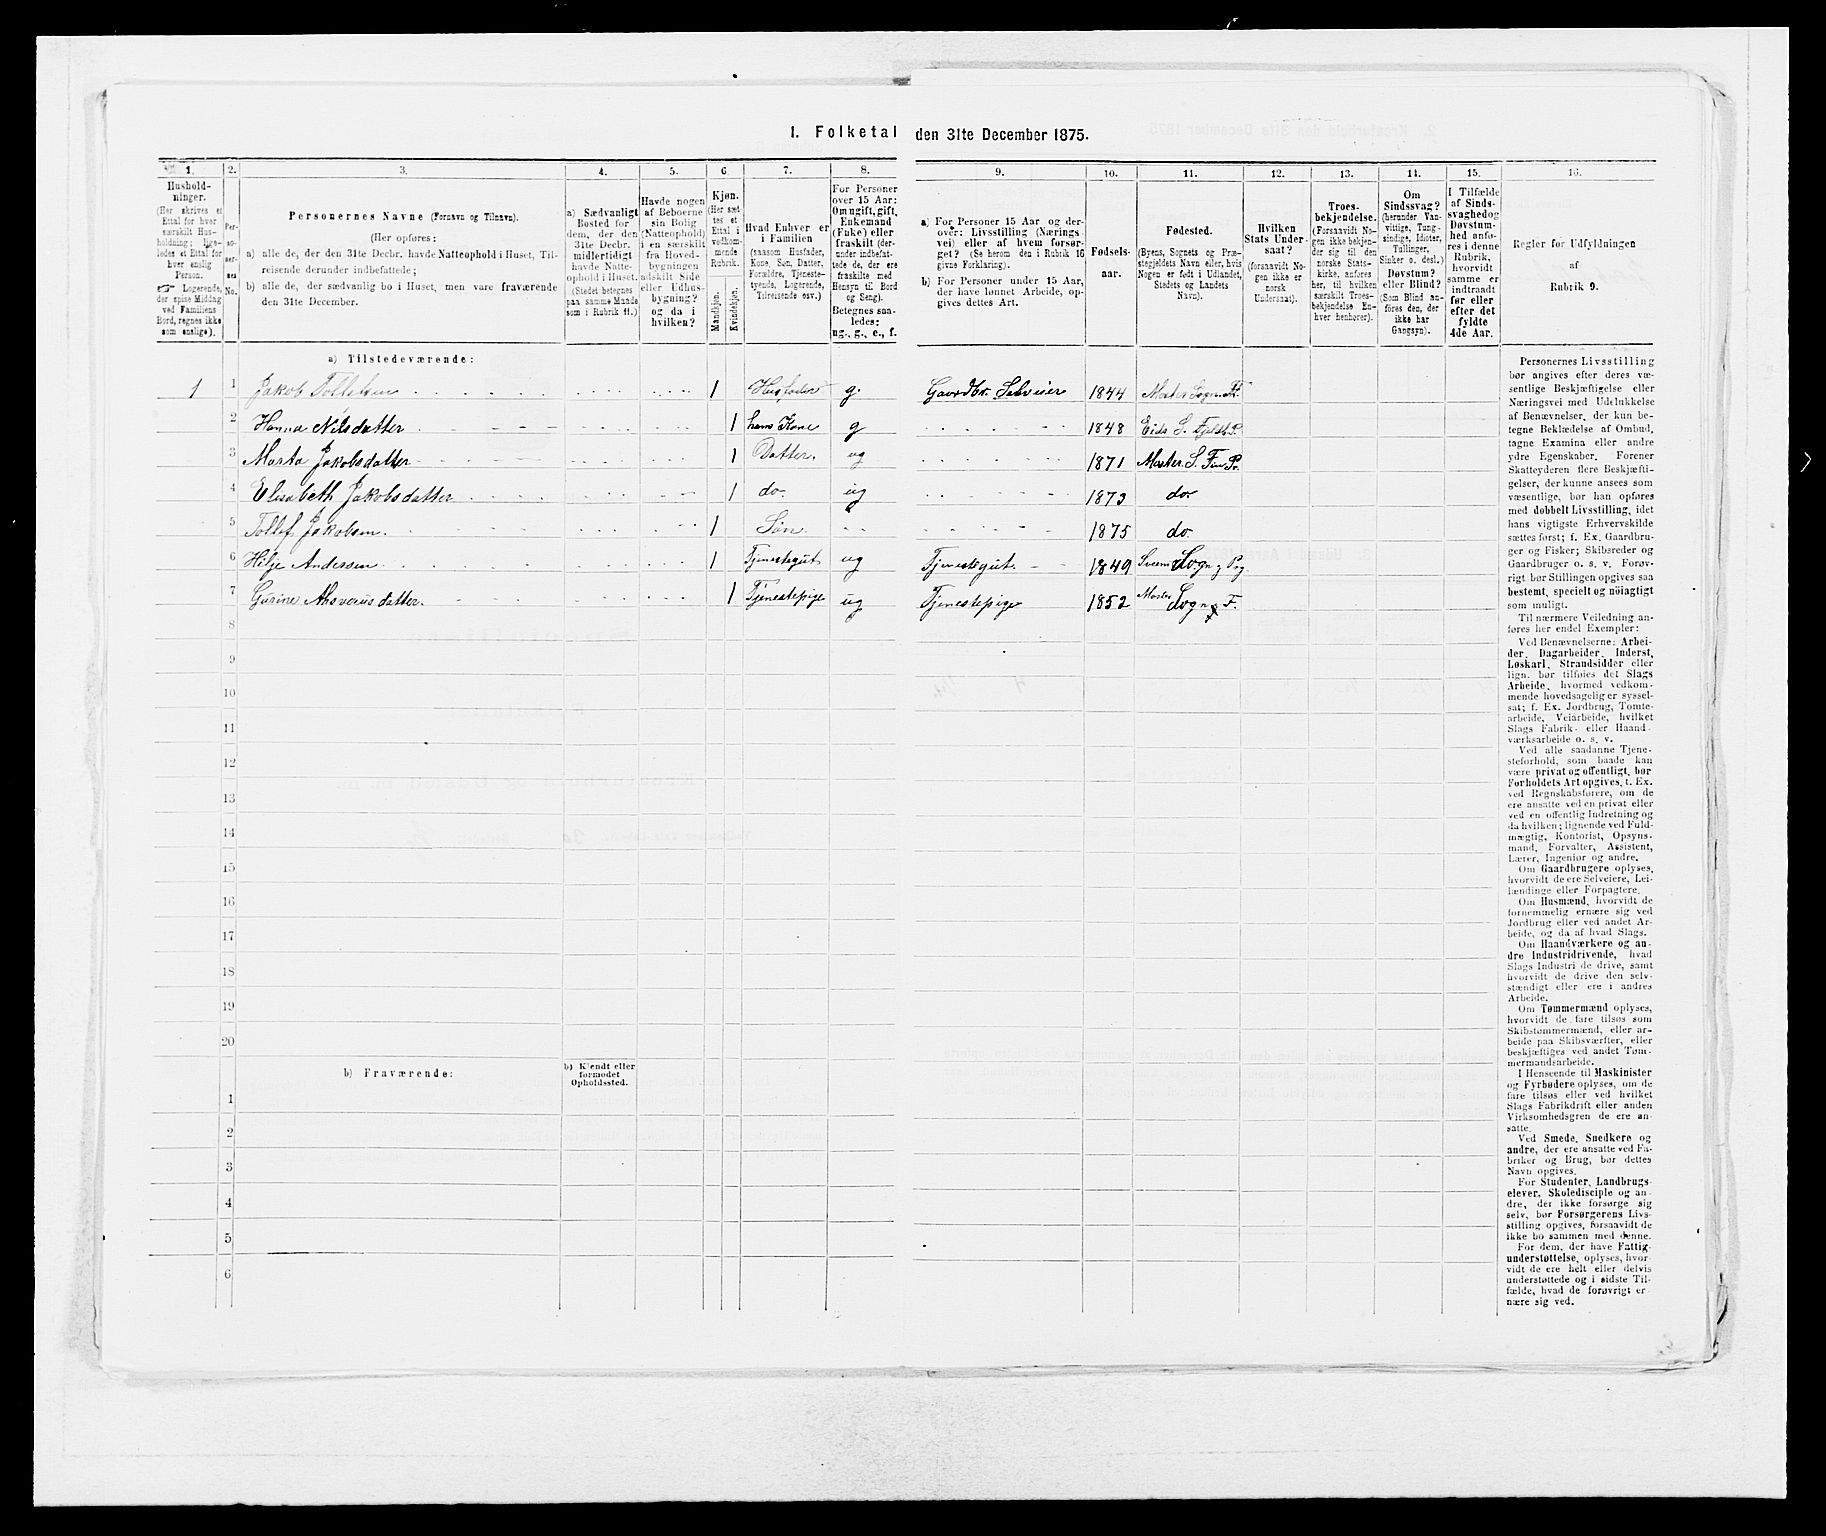 1. Folketal den 31te December 1875.
1. 2. 3. 4. 5. 6. 7. 8. 9. 10. 11. 12. 13. 14. 15. 16.
Hushold-
ninger.
(Her skrives et
Ettal for hver
særskilt Hus-
holdning; lige-
ledes et Ettal for
hver enslig
Person.
☞ Logerende,
der spise Middag
ved Familiens
Bord, regnes ikke
som enslige).
Per-
so-
ner-
nes
No.
Personernes Navne (Fornavn og Tilnavn).
(Her opføres:
a) alle de, der den 31te Decbr. havde Natteophold i Huset, Til-
reisende derunder indbefattede;
b) alle de, der sædvanlig bo i Huset, men vare fraværende
den 31te December.
a) Sædvanligt
Bosted for
dem, der den
31te Decbr.
midlertidigt
havde Natte-
ophold i Huset.
(Stedet betegnes
paa samme Maade
som i Rubrik 11.)
Havde nogen
af Beboerne
sin Bolig
(Natteophold)
i en særskilt
fra Hoved-
bygningen
adskilt Side
eller Udhus-
bygning?
og da i
hvilken?
Kjøn.
(Her sæt
tes et
Ettal i
vedkom-
mende
Rubrik.
Mandkjøn.
Kvindekjøn.
Hvad Enhver er
i Familien
(saasom Husfader,
Kone, Søn, Datter,
Forældre, Tjeneste-
tyende, Logerende,
Tilreisende osv.)
For Personer
over 15 Aar:
Om ugift, gift,
Enkemand
(Enke) eller
fraskilt (der-
under indbefat-
tede de, der ere
fraskilte med
Hensyn til Bord
og Seng).
Betegnes saa-
ledes:
ug., g., e., f.
a) For Personer 15 Aar og der-
over: Livsstilling (Nærings
vei) eller af hvem forsør-
get? (Se herom den i Rubrik 16
givne Forklaring).
b) For Personer under 15 Aar,
der have lønnet Arbeide, op-
gives dettes Art.
Fødsels-
aar.
Fødested.
(Byens, Sognets og Præ-
stegjeldets Navn eller, hvis
Nogen er født i Udlandet,
Stedets og Landets
Navn).
Hvilken
Stats Under-
saat?
(forsaavidt No-
gen ikke er
norsk
Undersaat).
Troes-
bekjendelse.
(Forsaavidt No-
gen ikke bekjen-
der sig til den
norske Stats-
kirke, anføres
her, til hvilken
særskilt Troes-
bekjendelse En-
hver henhører).
Om
Sindssvag?
(herunder Van-
vittige, Tung-
sindige, Idioter,
Tullinger,
Sinker o. desl.)
Døvstum?
eller Blind?
(Som Blind an-
føres den, der
ikke har
Gangsyn).
I Tilfælde
af Sinds-
svaghed og
Døvstum-
hed anfø-
res i denne
Rubrik,
hvorvidt
samme er
indtraadt
før eller
efter det
fyldte
4de Aar.
Regler for Udfyldningen
af
Rubrik 9.
a) Tilstedeværende:
1 1 Jakob Tollefsen 1 Husfader g. Gaardbr. Selveier 1844 Moster Sogn
2 Hanna Nilsdatter 1 hans Kone g 1848 Eids S.
3 Marta Jakobsdatter 1 Datter. ug 1871 Moster S. P.
4 Elisabeth Jakobsdatter 1 do. ug 1873 do
5 Tollef Jakobsen 1 Søn 1875 do.
6 Hilje Andersen 1 Tjenestegut ug Tjenestegut. 1849 Sveens Sogn g Prg.
7 Gurine Ahsverusdatter. 1 Tjenestepige ug Tjenestepige 1852 Moster Sogn F.
8
9
10
11
12
13
14
15
16
17
18
19
20
b) Fraværende:
b) Kjendt eller
formodet
Opholdssted.
1
2
3
4
5
6
Personernes Livsstilling
bør angives efter deres væ-
sentlige Beskjæftigelse eller
Næringsvei med Udelukkelse
af Benævnelser, der kun be-
tegne Beklædelse af Ombud,
tagne Examina eller andre
ydre Egenskaber. Forener
Skatteyderen flere Beskjæfti-
gelser, der kunne ansees som
væsentlige, bør han opføres
med dobbelt Livsstilling, idet
hans vigtigste Erhvervskilde
sættes først; f. Ex. Gaardbru-
ger og Fisker; Skibsreder og
Gaardbruger o. s. v. Forøv-
rigt bør Stillingen opgives saa
bestemt, specielt og nöiagtigt
som muligt.
Til nærmere Veiledning an-
føres her endel Exempler:
Ved Benævnelserne: Arbei-
der, Dagarbeider, Inderst,
Løskarl, Strandsidder eller
lign. bør tilføies det Slags
Arbeide, hvormed vedkom-
mende hovedsagelig er syssel-
sat; f. Ex. Jordbrug, Tomte-
arbeide, Veiarbeide, hvilket
Slags Fabrik- eller Haand-
værksarbeide o. s. v.
Ved alle saadanne Tjene-
steforhold, som baade kan
være privat og offentligt, bør
Forholdets Art opgives, t. Ex.
ved Regnskabsførere, om de
ere ansatte ved en privat eller
ved en offentlig Indretning og
da hvilken; lignende ved Fuld-
mægtig, Kontorist, Opsyns-
mand, Forvalter, Assistent,
Lærer, Ingeniør og andre.
Om Gaardbrugere oplyses,
hvorvidt de ere Selveiere, Lei-
lændinge eller Forpagtere.
Om Husmænd, hvorvidt de
fornemmelig ernære sig ved
Jordbrug eller ved andet Ar-
beide, og da af hvad Slags.
Om Haandværkere og an-
dre Industridrivende, hvad
Slags Industri de drive, samt
hvorvidt de drive den selv-
stændigt eller ere i andres
Arbeide.
Om Tømmermænd oplyses,
hvorvidt de fare tilsøs som
Skibstømmermænd, eller ar-
beide paa Skibsværfter, eller
beskjæftiges ved andet Tøm-
mermandsarbeide.
I Henseende til Maskinister
og Fyrbødere oplyses, om de
fare tilsøs eller ved hvilket
Slags Fabrikdrift eller anden
Virksomhedsgren de ere an-
satte.
Ved Smede, Snedkere og
andre, der ere ansatte ved Fa-
briker og Brug, bør dettes
Navn opgives.
For Studenter, Landbrugs-
elever, Skoledisciple og an-
dre, der ikke forsørge sig
selv, bør Forsørgerens Livs-
stilling opgives, forsaavidt de
ikke bo sammen med denne.
For dem, der have Fattig-
understøttelse, oplyses, hvor-
vidt de ere helt eller delvis
understøttede og i sidste Til-
fælde, hvad de forøvrigt er-
nære sig ved.